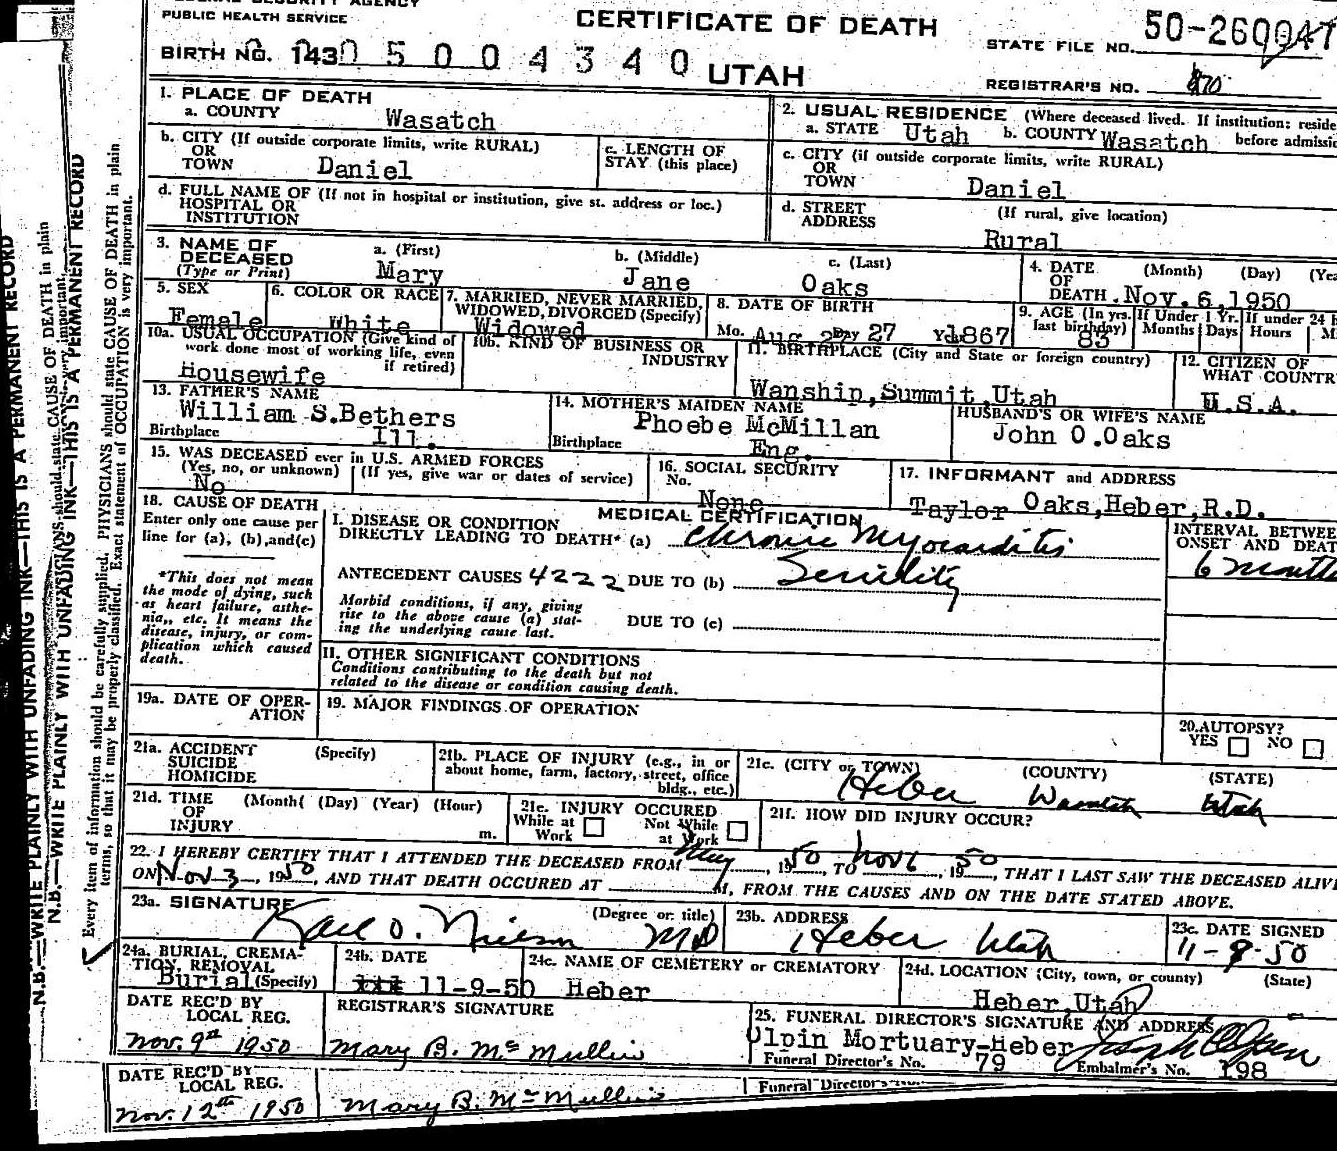 PUBLIC HEALTH SERVICE
CERTIFICATE OF DEATH
UTAH
STATE FILE NO. 50-260047
BIRTH NO. 1430 5 0 0 4 3 4 0
REGISTRAR'S NO.
1. PLACE OF DEATH
a. COUNTY Wasatch
b. CITY (If outside corporate limits, write RURAL)
OR
TOWN Daniel
c. LENGTH OF
STAY (this place)
d. FULL NAME OF (If not in hospital or institution, give st. address or loc.)
HOSPITAL OR
INSTITUTION
2. USUAL RESIDENCE (Where deceased lived. If institution: reside
a. STATE Utah b. COUNTY Wasatch before admissio
c. CITY (if outside corporate limits, write RURAL)
OR
TOWN Daniel
d. STREET (If rural, give location)
ADDRESS
Rural
3. NAME OF DECEASED
(Type or Print)
a. (First) Mary
b. (Middle) Jane
c. (Last) Oaks
4. DATE (Month) (Day) (Yea
OF
DEATH Nov. 6,1950
5. SEX Female
6. COLOR OR RACE White
7. MARRIED, NEVER MARRIED,
WIDOWED, DIVORCED (Specify)
Widowed
8. DATE OF BIRTH
Mo. Aug Day 27 Yr 1867
9. AGE (In yrs. last birthday) 83
If Under 1 Yr. Months Days
If under 24 H Hours M
10a. USUAL OCCUPATION (Give kind of
work done most of working life, even
if retired)
Housewife
10b. KIND OF BUSINESS OR
INDUSTRY
11. BIRTHPLACE (City and State or foreign country)
Wanship,Summit,Utah
12. CITIZEN OF
WHAT COUNTR
U.S.A.
13. FATHER'S NAME
William S.Bethers
Birthplace Ill.
14. MOTHER'S MAIDEN NAME
Phoebe McMillan
Birthplace Eng.
HUSBAND'S OR WIFE'S NAME
John O.Oaks
15. WAS DECEASED ever in U.S. ARMED FORCES
(Yes, no, or unknown) (If yes, give war or dates of service)
No
16. SOCIAL SECURITY
No. None
17. INFORMANT and ADDRESS
Taylor Oaks,Heber,R.D.
18. CAUSE OF DEATH
Enter only one cause per
line for (a), (b),and(c)
*This does not mean
the mode of dying, such
as heart failure, asthe-
nia,, etc. It means the
disease, injury, or com-
plication which caused
death.
MEDICAL CERTIFICATION
I. DISEASE OR CONDITION
DIRECTLY LEADING TO DEATH* (a) Chronic Myocarditis
INTERVAL BETWEE
ONSET AND DEAT
6 months
ANTECEDENT CAUSES 4222 DUE TO (b) Senility
Morbid conditions, if any, giving
rise to the above cause (a) stat-
ing the underlying cause last.
DUE TO (c)
II. OTHER SIGNIFICANT CONDITIONS
Conditions contributing to the death but not
related to the disease or condition causing death.
19a. DATE OF OPER-
ATION
19. MAJOR FINDINGS OF OPERATION
20. AUTOPSY?
YES NO
21a. ACCIDENT (Specify)
SUICIDE
HOMICIDE
21b. PLACE OF INJURY (e.g., in or
about home, farm, factory, street, office
bldg., etc.)
21c. (CITY or TOWN) (COUNTY) (STATE)
Heber Wasatch Utah
21d. TIME (Month( (Day) (Year) (Hour)
OF
INJURY m.
21e. INJURY OCCURED
While at Work Not While at Work
21f. HOW DID INJURY OCCUR?
22. I HEREBY CERTIFY THAT I ATTENDED THE DECEASED FROM May, 1950 TO Nov 6 1950, THAT I LAST SAW THE DECEASED ALIVE
ON Nov 3, 1950, AND THAT DEATH OCCURED AT M, FROM THE CAUSES AND ON THE DATE STATED ABOVE.
23a. SIGNATURE (Degree or title)
Karl O. Nielson MD
23b. ADDRESS
Heber Utah
23c. DATE SIGNED
11-9-50
24a. BURIAL, CREMA-
TION, REMOVAL
Burial (Specify)
24b. DATE
11-9-50
24c. NAME OF CEMETERY or CREMATORY
Heber
24d. LOCATION (City, town, or county) (State)
Heber,Utah
DATE REC'D BY
LOCAL REG.
Nov. 9th 1950
REGISTRAR'S SIGNATURE
Mary B. McMullin
25. FUNERAL DIRECTOR'S SIGNATURE AND ADDRESS
Olpin Mortuary-Heber
Funeral Director's No. 79 Embalmer's No. 198
DATE REC'D BY
LOCAL REG.
Nov. 12th 1950
Mary B. McMullin
Funeral Director's
N.B.—WRITE PLAINLY WITH UNFADING INK—THIS IS A PERMANENT RECORD
Every item of information should be carefully supplied. PHYSICIANS should state CAUSE OF DEATH in plain
terms, so that it may be properly classified. Exact statement of OCCUPATION is very important.
N.B.—WRITE PLAINLY WITH UNFADING INK—THIS IS A PERMANENT RECORD